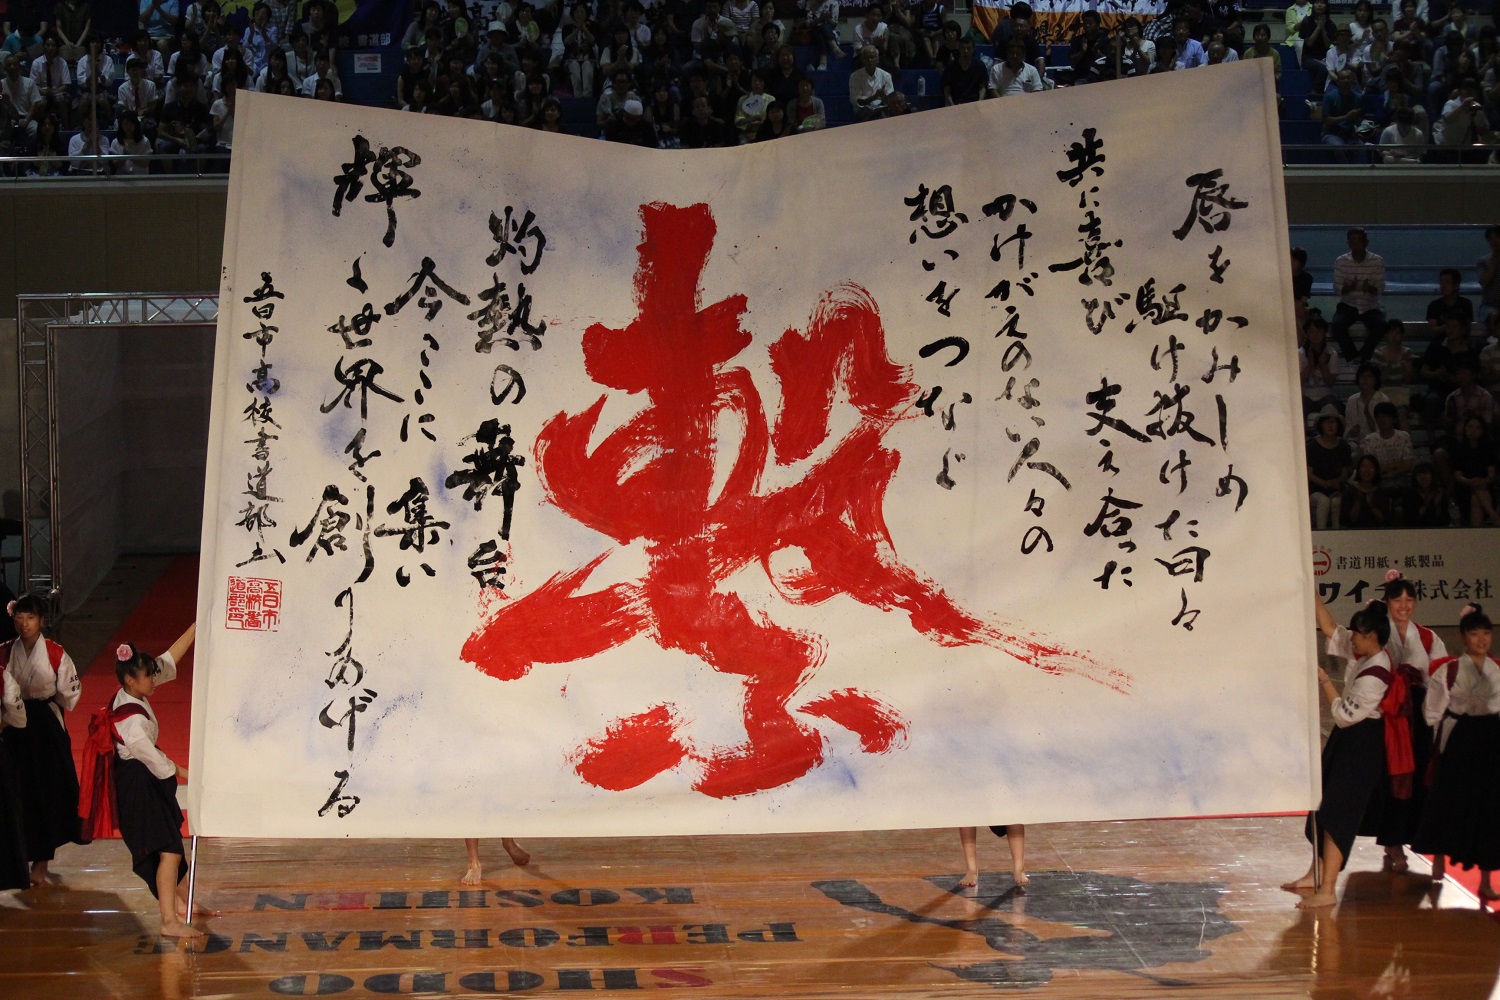 唇をかみしめ
駆け抜けた日々
共に喜び 支え合った
かけがえのない人々の
想いをつなぐ
繋
灼熱の舞台
今ここに集い
輝く世界を創りあげる
五日市高校書道部
五日市
高校書
道部印
書道用紙・紙製品
株式会社
SHODO
PERFORMANCE
KOSHIEN